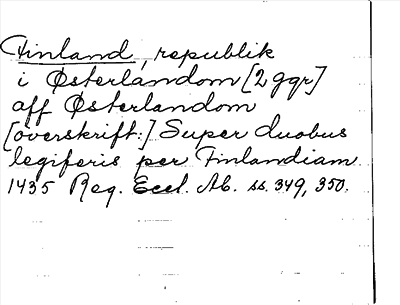 Finland, republik
i Østerlandom [2 ggr]
aff Østerlandom
[överskrift:] Super duobus
legiferis per Finlandiam
1435 Reg. Eccl. Ab. ss. 349, 350.